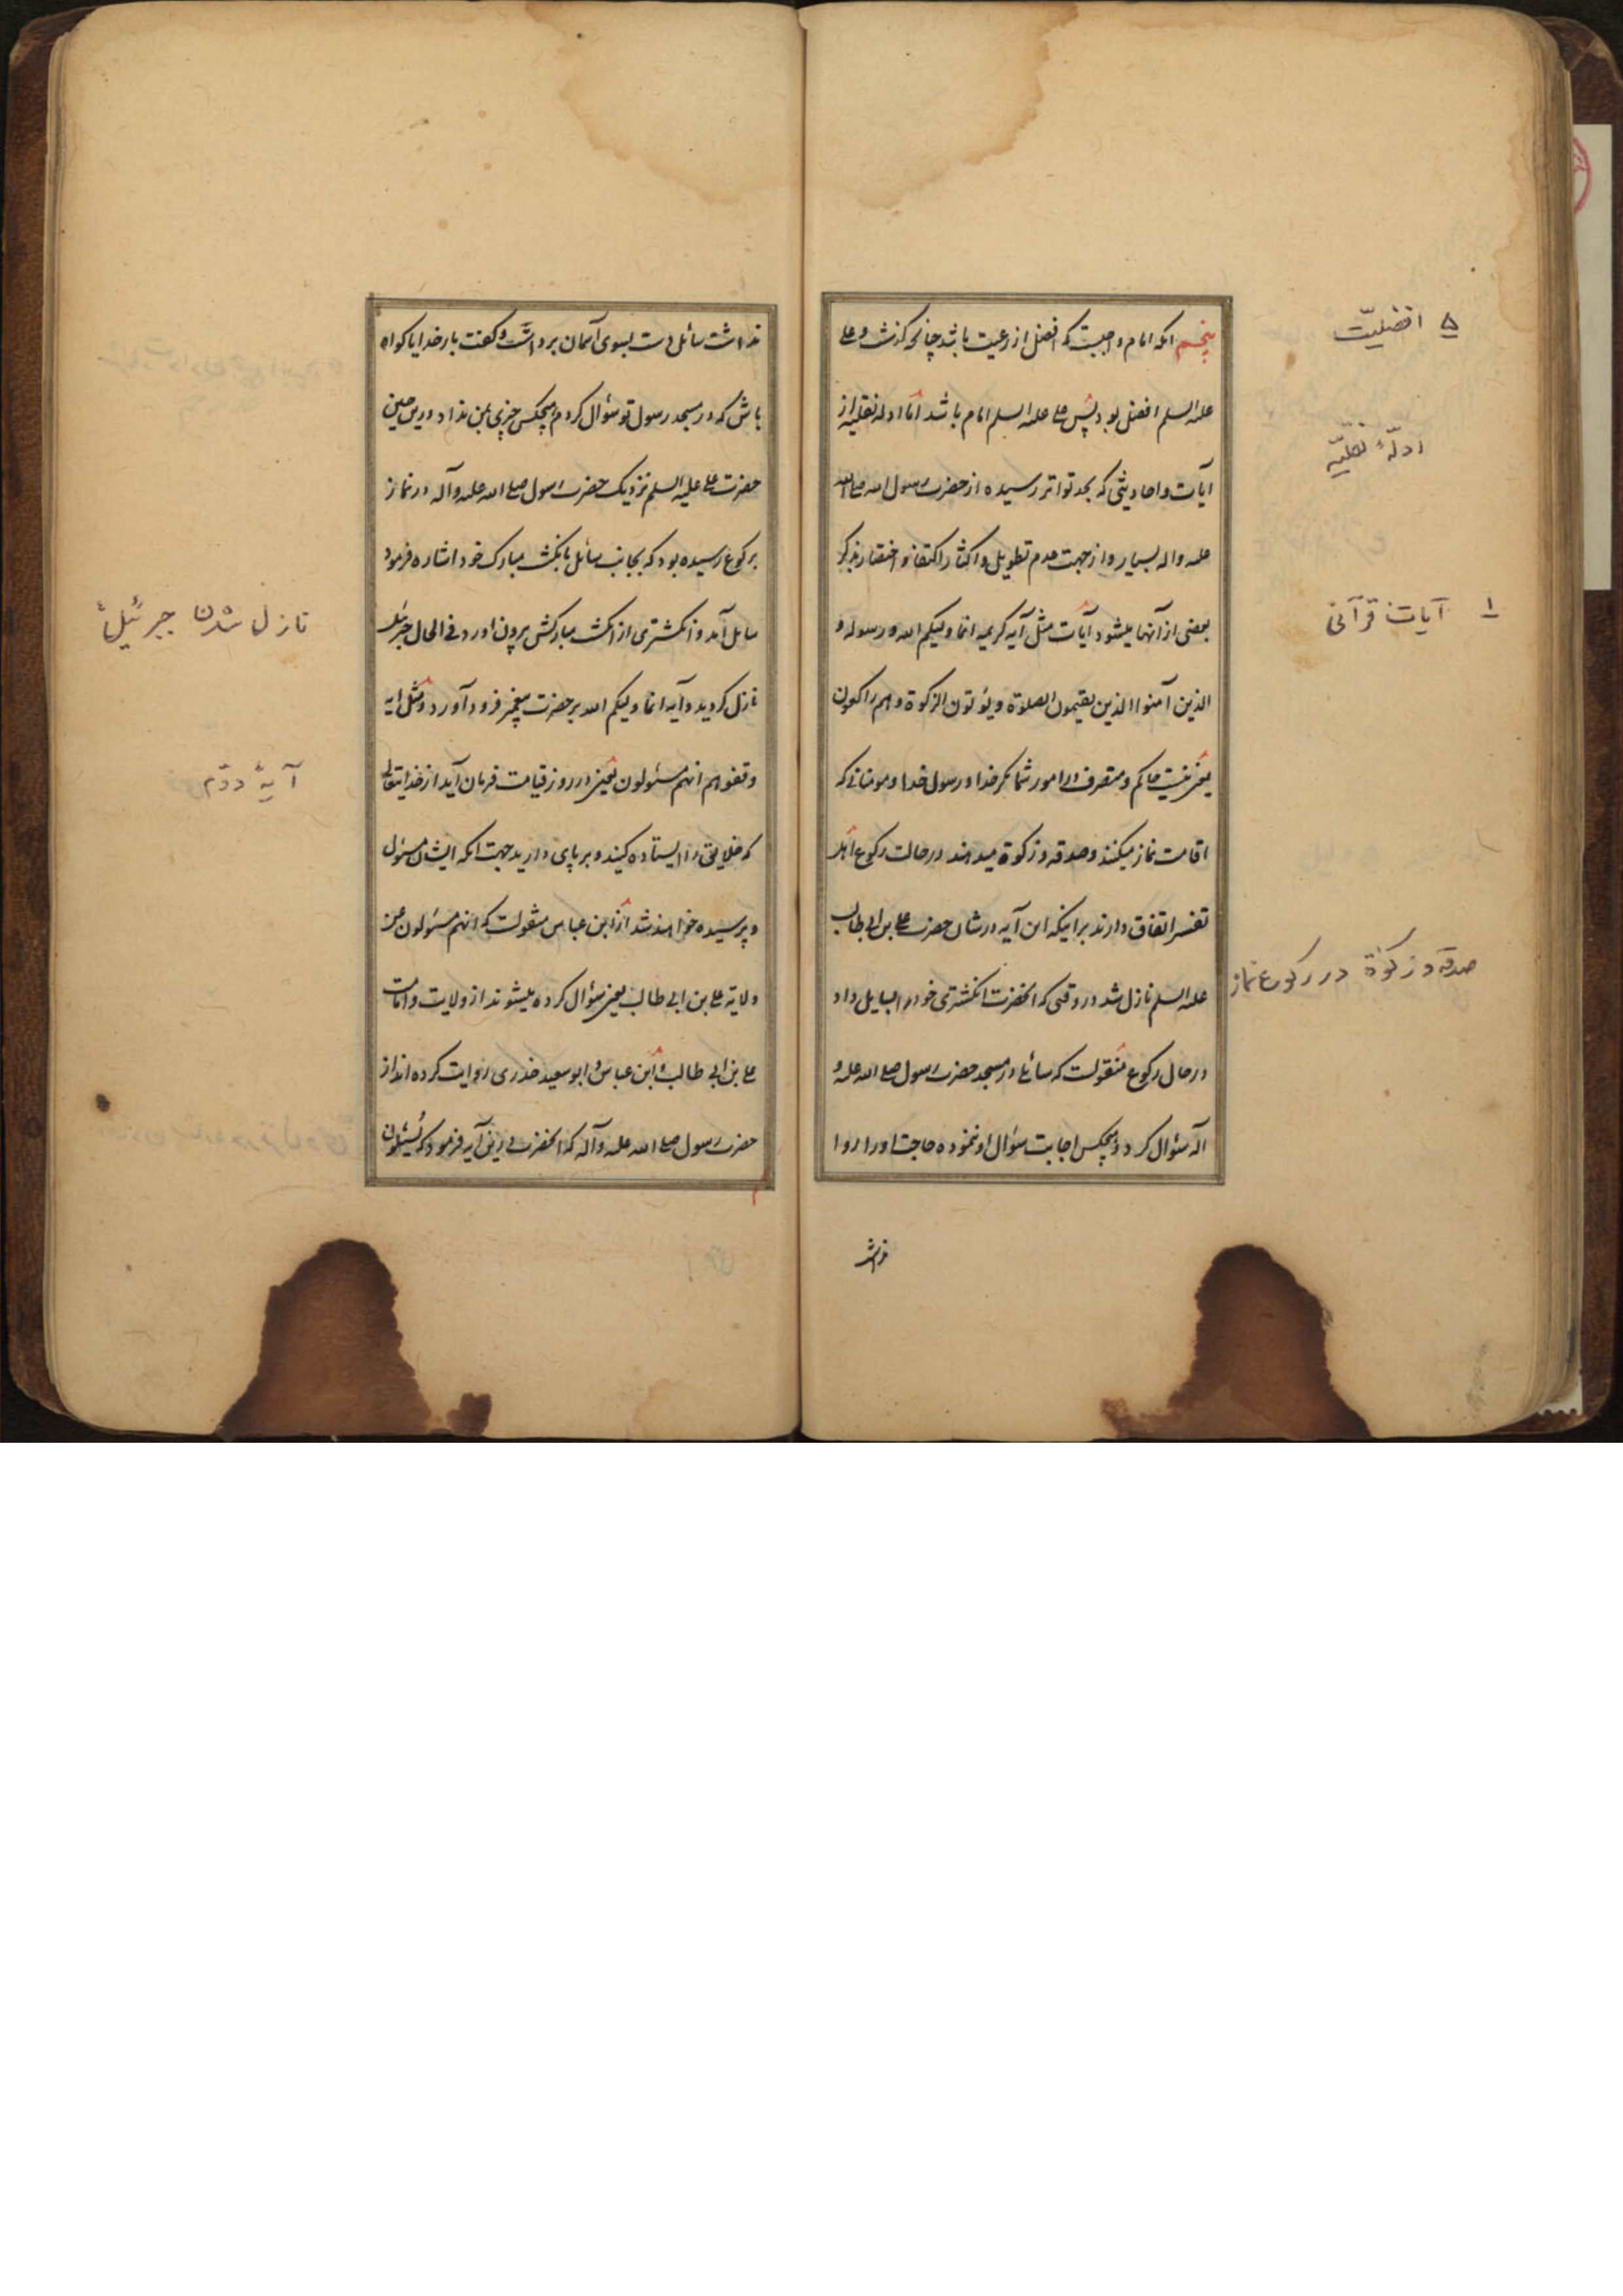 پنجم انکه امام واجبست که افضل از رعیت باشد چنانچه کذشت و علی
علیه السلم افضل بود پس علی علیه السلم امام باشد اما ادله نقلیه از
آیات و احادیثی که بحد تواتر رسیده از حضرت رسول الله صلی الله
علیه و اله بسیار و از جهت عدم تطویل و اکثار اکتفا و اختصار بذکر
بعضی از آنها میشود آیات مثل آیه کریمه انما ولیکم الله و رسوله و
الذین آمنوا الذین یقیمون الصلوة و یؤتون الزکوة و هم راکعون
یعنی نیست حاکم و متصرف در امور شما مکر خدا و رسول خدا و مومنانی که
اقامت نماز میکنند و صدقه و زکوة میدهند در حالت رکوع اهل
تفسیر اتفاق دارند بر اینکه این آیه در شان حضرت علی بن ابی طالب
علیه السلم نازل شد در وقتی که انحضرت انکشتری خود را بسایل داد
در حال رکوع منقولست که سائلی در مسجد حضرت رسول صلی الله علیه و
آله سئوال کرد و هیچکس اجابت سئوال او ننموده حاجت او را روا
۵ افضلیّت
ادلّهٔ نقلیّه
۱ آیات قرآنی
صدقه و زکوٰة در رکوع نماز
نداشت سائل دست بسوی آسمان برداشت و کفت بار خدایا کواه
باش که در مسجد رسول تو سئوال کردم هیچکس چیزی بمن نداد درین حین
حضرت علی علیه السلم نزدیک حضرت رسول صلی الله علیه و آله در نماز
برکوع رسیده بود که بجانب سائل بانکشت مبارک خود اشاره فرمود
سایل آمد و انکشتری از انکشت مبارکش بیرون اورد و فی الحال جبرئیل
نازل کردید و آیه انما ولیکم الله بر حضرت پیغمبر فرود آورد و مثل ایه
وقفوهم انهم مسئولون یعنی در روز قیامت فرمان آید از خدایتعالی
که خلایق را ایستاده کنید و بر پای دارید جهت انکه ایشان مسئول
و پرسیده خواهند شد از ابن عباس منقولست که انهم مسئولون عن
ولایة علی بن ابی طالب یعنی سؤال کرده میشوند از ولایت و امامت
علی بن ابی طالب و ابن عباس و ابو سعید خدری روایت کرده اند از
حضرت رسول صلی الله علیه و آله که انحضرت درین آیه فرمود که یسئلون
نازل شدن جبرئیل
آیهٔ دوّم